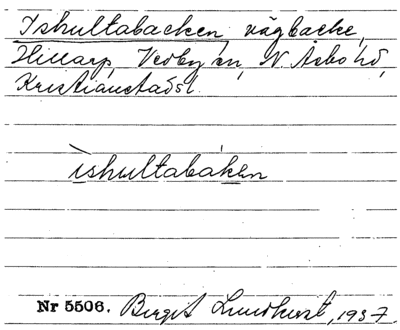 Ishultabacken, vägbacke,
Hillarp, Vedby sn, N. Asbo hd,
Kristianstads l.
ìshultabáken
Nr 5506. Birgit Lundkvist, 1937.